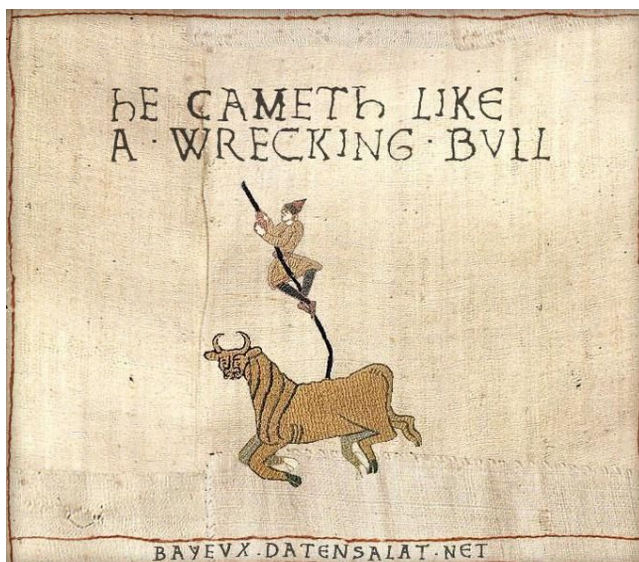 hE CAMETh LIKE
A · WRECKING · BVLL
BAYEVX.DATENSALAT.NET